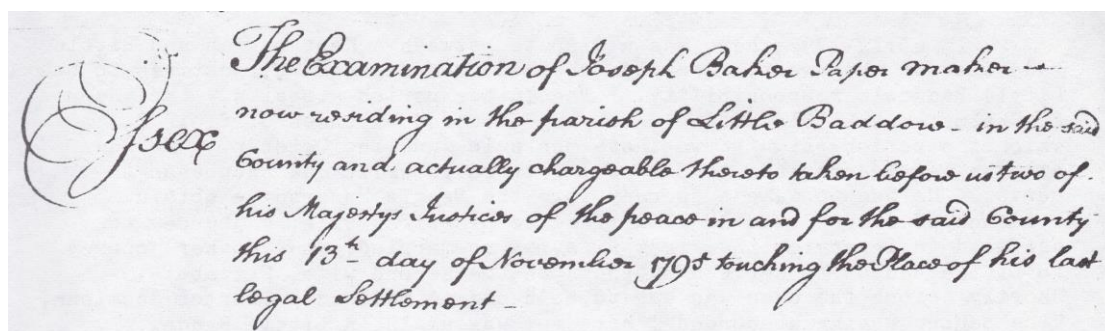 The Examination of Joseph Baker Paper maker -
Essex
now residing in the parish of Little Baddow - in the said
County and actually chargeable thereto taken before us two of
his Majestys Justices of the peace in and for the said County
this 13th day of November 1795 touching the Place of his last
legal Settlement -